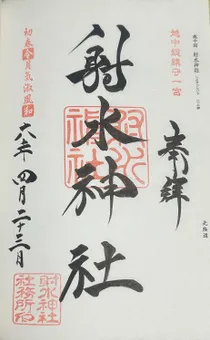 越中総鎮守一宮
奉拝
射水神社
射水神社
初春令月気淑風和
六年四月二十三日
射水神社
社務所印